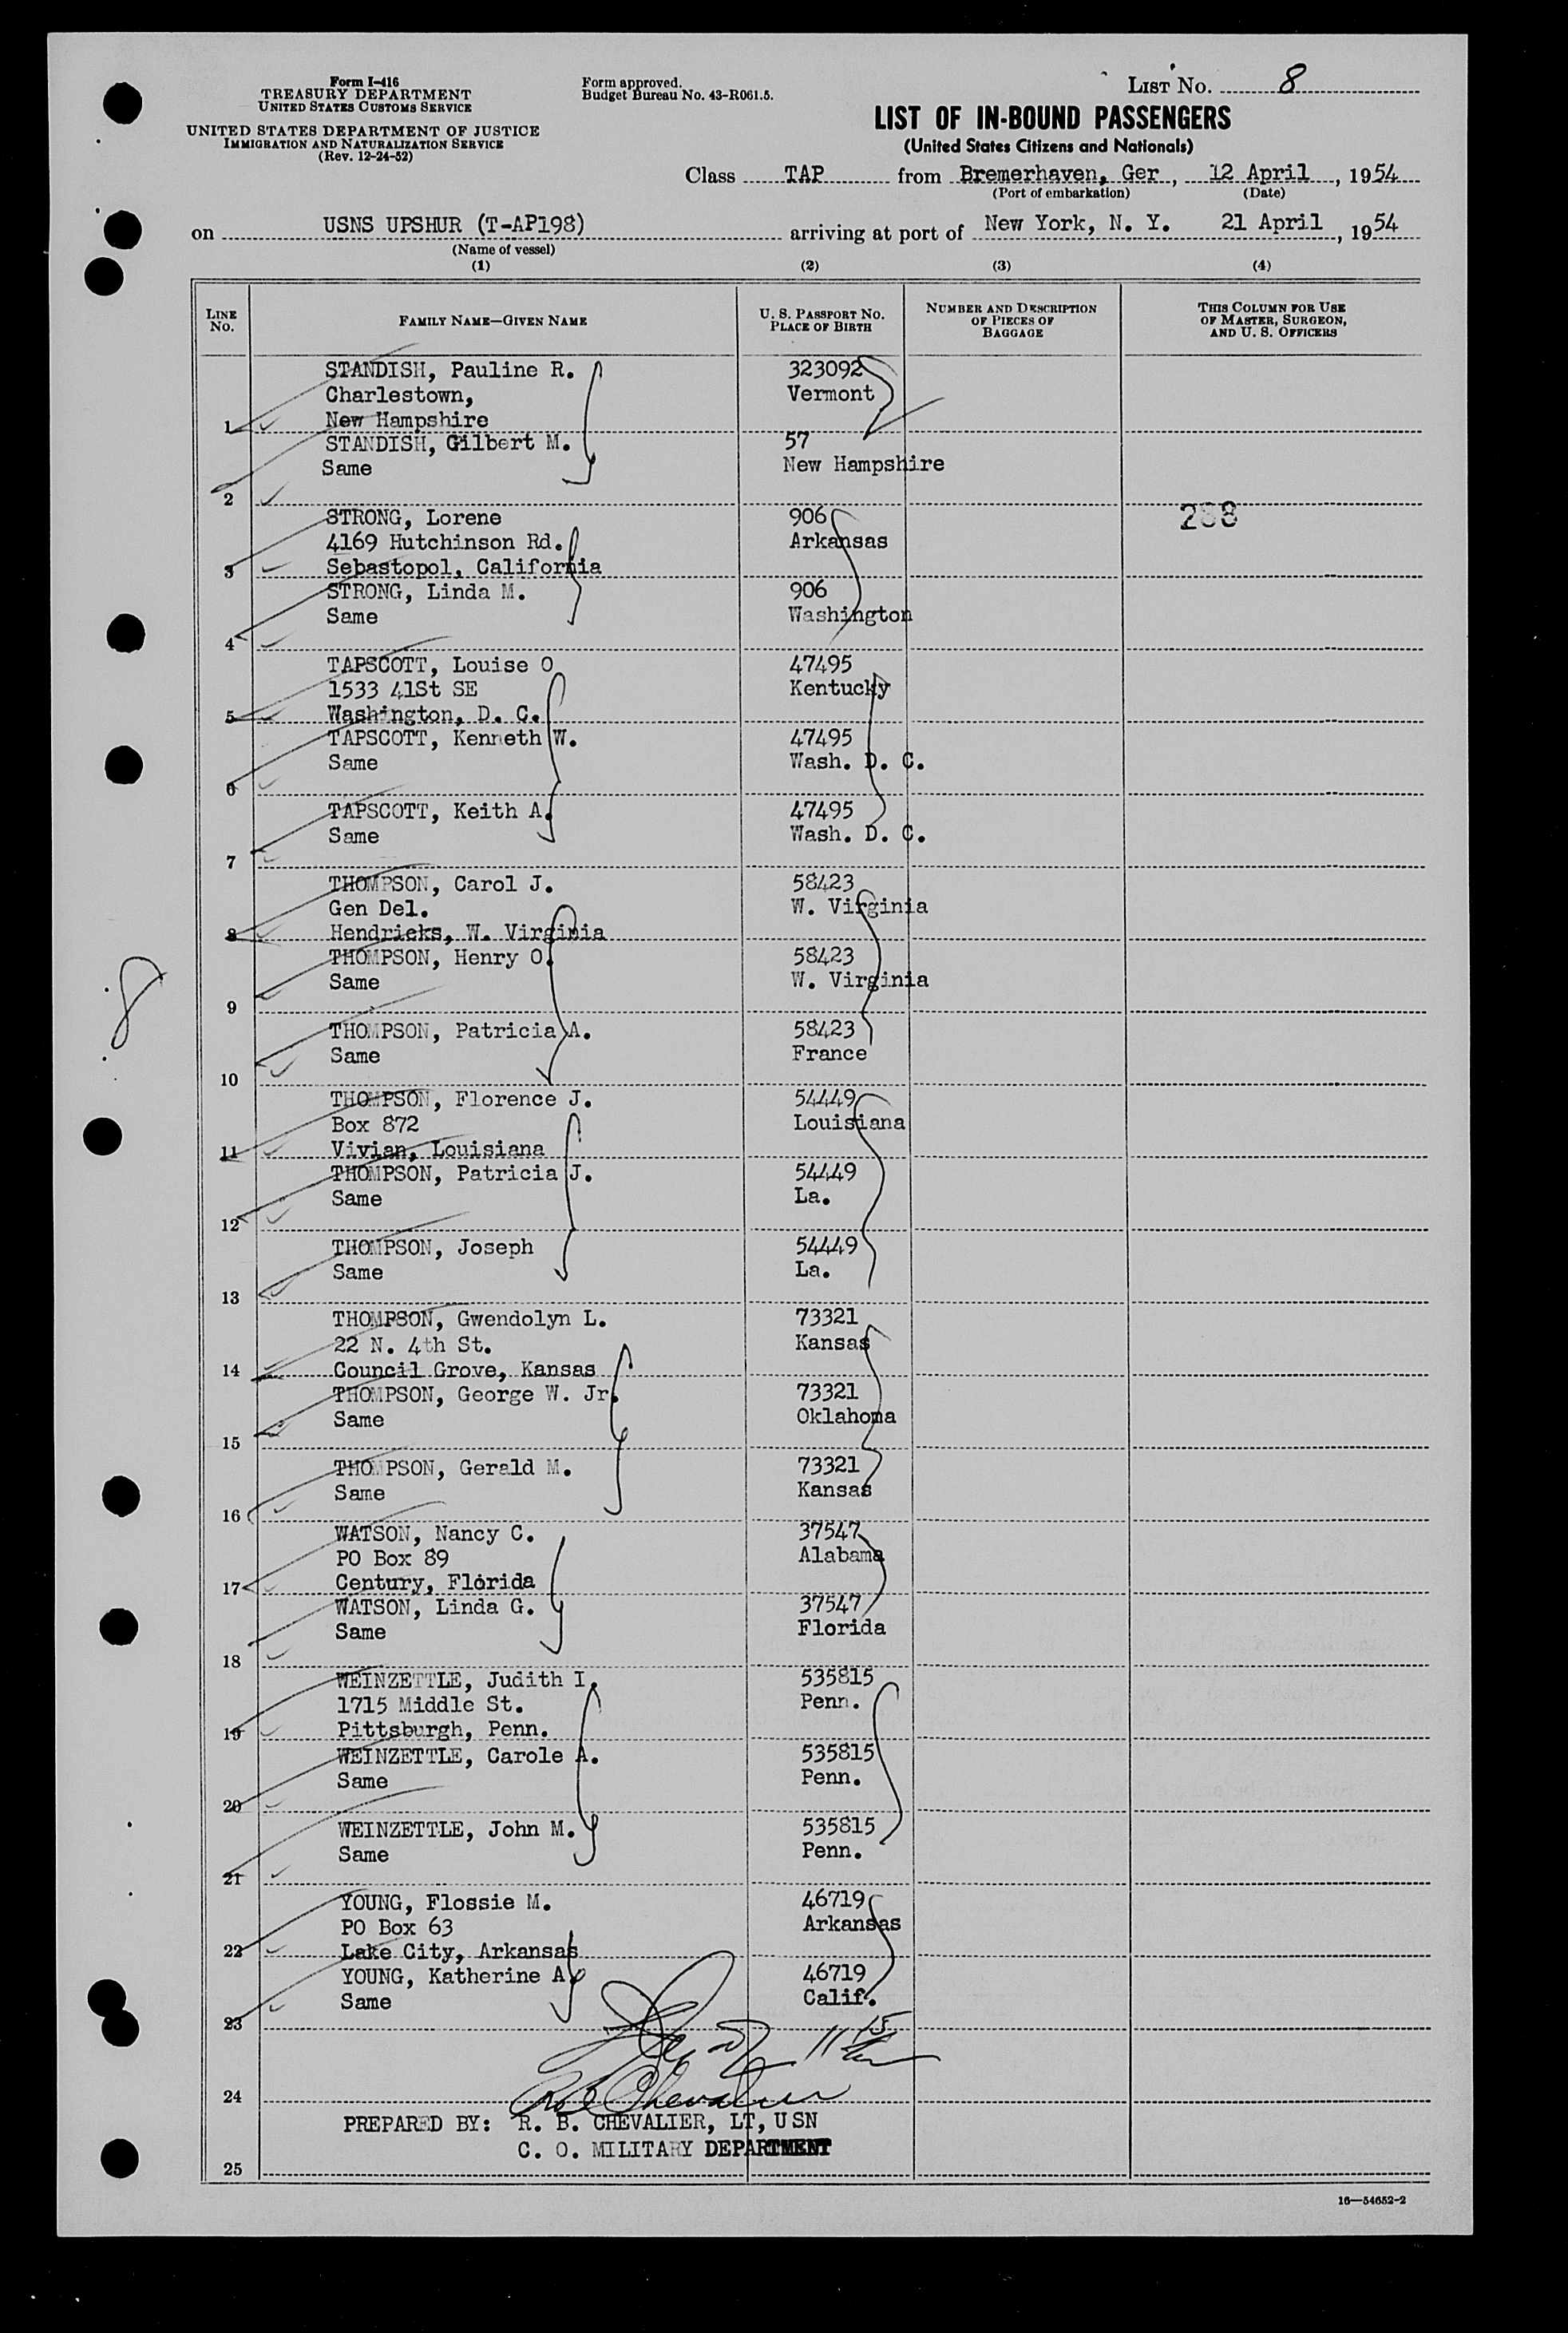 Form I-416
TREASURY DEPARTMENT
UNITED STATES CUSTOMS SERVICE
UNITED STATES DEPARTMENT OF JUSTICE
IMMIGRATION AND NATURALIZATION SERVICE
(Rev. 12-24-52)
Form approved.
Budget Bureau No. 43-R061.5.
LIST No. 8
LIST OF IN-BOUND PASSENGERS
(United States Citizens and Nationals)
Class TAP from Bremerhaven, Ger, 12 April, 1954
(Port of embarkation) (Date)
on USNS UPSHUR (T-AP198) arriving at port of New York, N. Y. 21 April, 1954
(Name of vessel)
(1) (2) (3) (4)
LINE NO. FAMILY NAME—GIVEN NAME U. S. PASSPORT NO. PLACE OF BIRTH NUMBER AND DESCRIPTION OF PIECES OF BAGGAGE THIS COLUMN FOR USE OF MASTER, SURGEON, AND U. S. OFFICERS
STANDISH, Pauline R. 323092
Charlestown, Vermont
1 New Hampshire
STANDISH, Gilbert M. 57
Same New Hampshire
2
STRONG, Lorene 906 288
4169 Hutchinson Rd. Arkansas
3 Sebastopol, California
STRONG, Linda M. 906
Same Washington
4
TAPSCOTT, Louise O 47495
1533 41St SE Kentucky
5 Washington, D. C.
TAPSCOTT, Kenneth W. 47495
Same Wash. D. C.
6
TAPSCOTT, Keith A. 47495
Same Wash. D. C.
7
THOMPSON, Carol J. 58423
Gen Del. W. Virginia
8 Hendricks, W. Virginia
THOMPSON, Henry O. 58423
Same W. Virginia
9
THOMPSON, Patricia A. 58423
Same France
10
THOMPSON, Florence J. 54449
Box 872 Louisiana
11 Vivian, Louisiana
THOMPSON, Patricia J. 54449
Same La.
12
THOMPSON, Joseph 54449
Same La.
13
THOMPSON, Gwendolyn L. 73321
22 N. 4th St. Kansas
14 Council Grove, Kansas
THOMPSON, George W. Jr. 73321
Same Oklahoma
15
THOMPSON, Gerald M. 73321
Same Kansas
16
WATSON, Nancy C. 37547
PO Box 89 Alabama
17 Century, Florida
WATSON, Linda G. 37547
Same Florida
18
WEINZETTLE, Judith I. 535815
1715 Middle St. Penn.
19 Pittsburgh, Penn.
WEINZETTLE, Carole A. 535815
Same Penn.
20
WEINZETTLE, John M. 535815
Same Penn.
21
YOUNG, Flossie M. 46719
PO Box 63 Arkansas
22 Lake City, Arkansas
YOUNG, Katherine A 46719
Same Calif.
23
11 15
24 Chevalier
PREPARED BY: R. B. CHEVALIER, LT, USN
C. O. MILITARY DEPARTMENT
25
16—54652-2
8